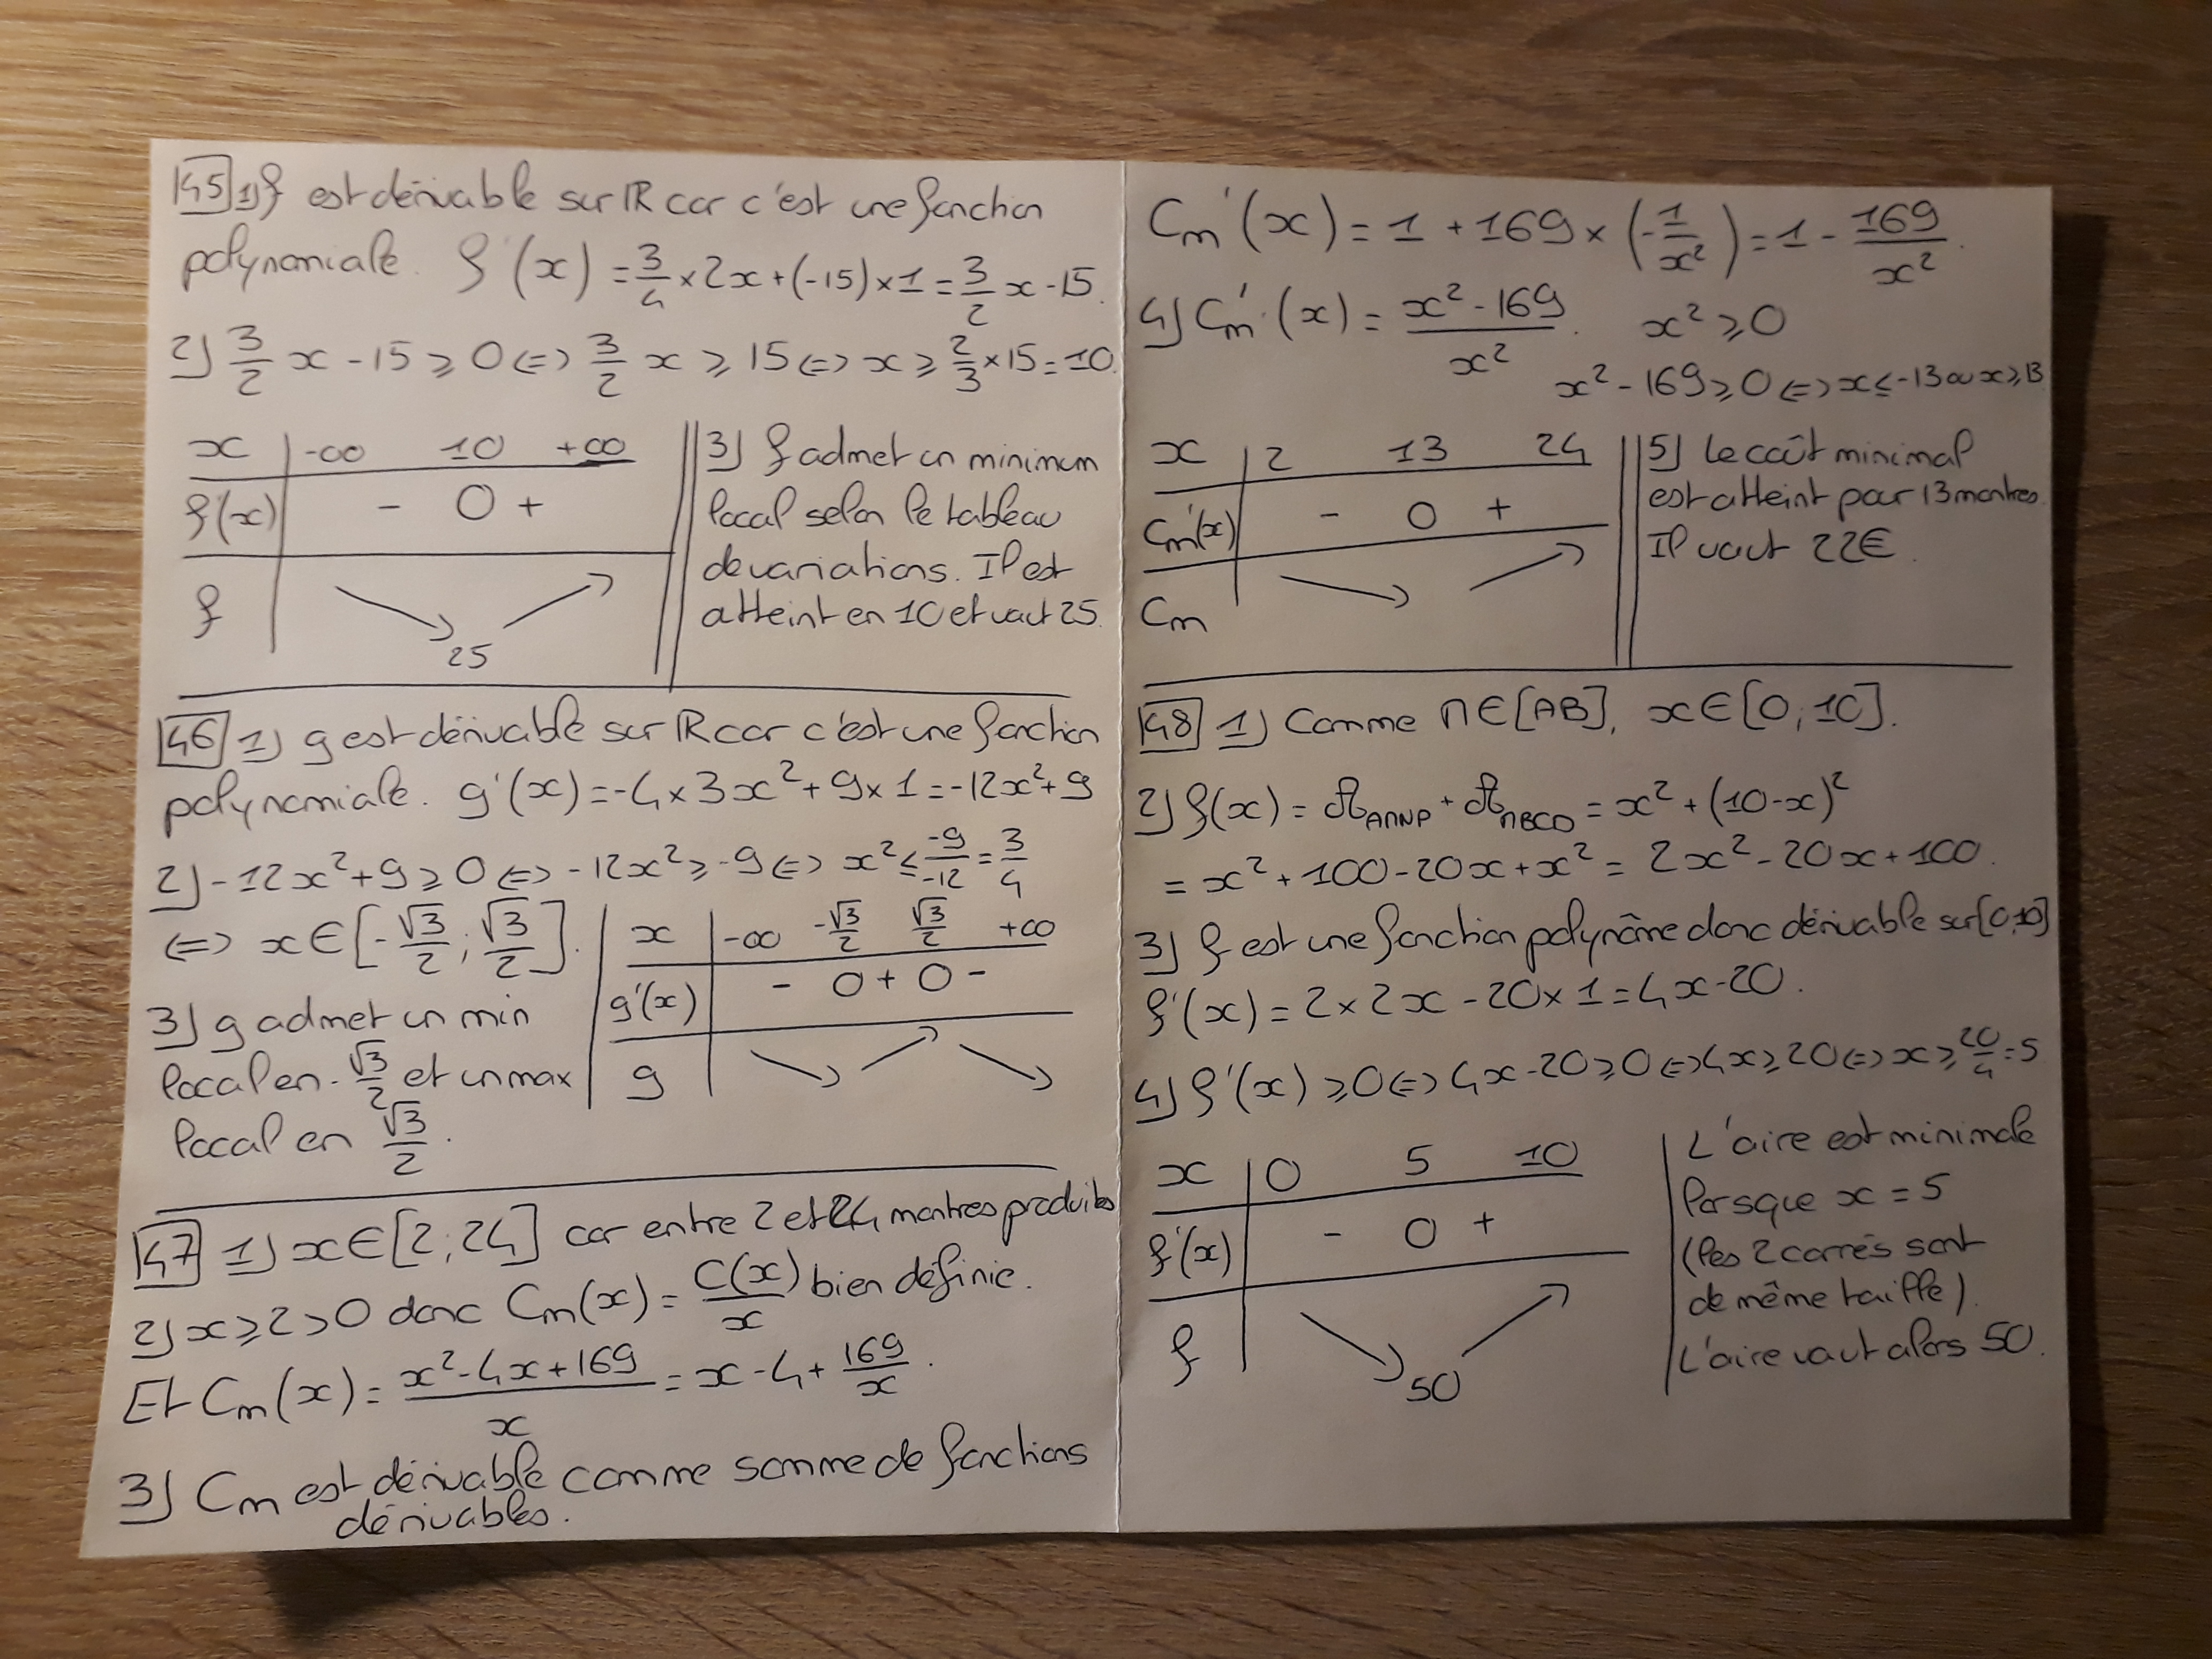 45 1) f est dérivable sur ℝ car c'est une fonction
polynomiale. f'(x) = 3/4 × 2x + (-15) × 1 = 3/2 x - 15.
2) 3/2 x - 15 ⩾ 0 <=> 3/2 x ⩾ 15 <=> x ⩾ 2/3 × 15 = 10.
x -∞ 10 +∞
f'(x) - 0 +
f ↘ 25 ↗
3) f admet un minimum
local selon le tableau
de variations. Il est
atteint en 10 et vaut 25.
46 1) g est dérivable sur ℝ car c'est une fonction
polynomiale. g'(x) = -4 × 3x² + 9 × 1 = -12x² + 9
2) -12x² + 9 ⩾ 0 <=> -12x² ⩾ -9 <=> x² ⩽ -9/-12 = 3/4
<=> x ∈ [-√3/2 ; √3/2].
x -∞ -√3/2 √3/2 +∞
g'(x) - 0 + 0 -
g ↘ ↗ ↘
3) g admet un min
local en -√3/2 et un max
local en √3/2.
47 1) x ∈ [2 ; 24] car entre 2 et 24 montres produites
2) x ⩾ 2 > 0 donc Cm(x) = C(x)/x bien définie.
Et Cm(x) = (x² - 4x + 169)/x = x - 4 + 169/x.
3) Cm est dérivable comme somme de fonctions
dérivables.
Cm'(x) = 1 + 169 × (-1/x²) = 1 - 169/x².
4) Cm'(x) = (x² - 169)/x². x² ⩾ 0
x² - 169 ⩾ 0 <=> x ⩽ -13 ou x ⩾ 13
x 2 13 24
Cm'(x) - 0 +
Cm ↘ ↗
5) Le coût minimal
est atteint pour 13 montres.
Il vaut 22€.
48 1) Comme M ∈ [AB], x ∈ [0 ; 10].
2) f(x) = 𝒜AMNP + 𝒜MBCD = x² + (10-x)²
= x² + 100 - 20x + x² = 2x² - 20x + 100.
3) f est une fonction polynôme donc dérivable sur [0,10]
f'(x) = 2 × 2x - 20 × 1 = 4x - 20.
4) f'(x) ⩾ 0 <=> 4x - 20 ⩾ 0 <=> 4x ⩾ 20 <=> x ⩾ 20/4 = 5
x 0 5 10
f'(x) - 0 +
f ↘ 50 ↗
L'aire est minimale
lorsque x = 5
(les 2 carrés sont
de même taille).
L'aire vaut alors 50.